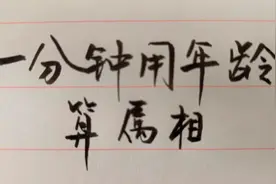 一分钟用年龄
算属相